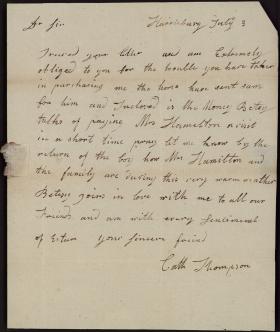 Dr Sir Harrisburg July 3
I receivd your letter and am Extremely
obliged to you for the trouble you have taken
in purchasing me the horse have sent sam
for him and Inclosed is the Money Betsy
talks of paying Mrs Hamilton a visit
in a short time pray let me know by the
return of the boy how Mrs Hamilton and
the family are during this very warm weather
Betsey joins in love with me to all our
Friends and am with every Sentiment
of Esteem your sincere friend
Cath Thompson